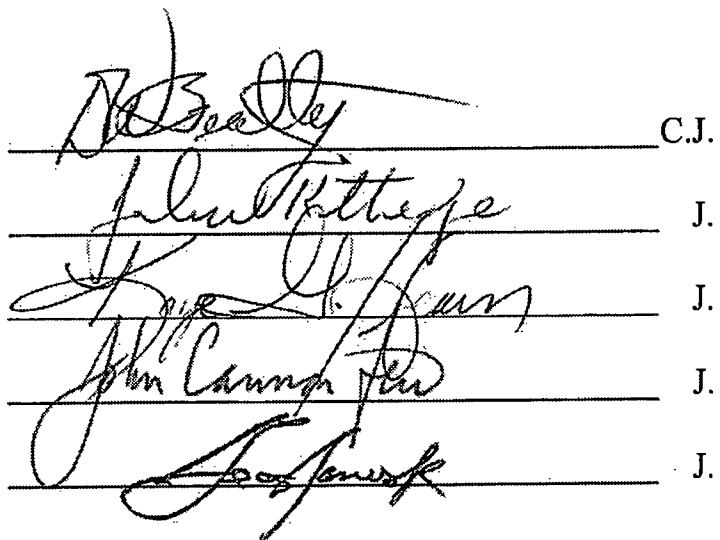 Beatty C.J.
Kittredge J.
Kaye G. Hearn J.
John Cannon Few J.
J.